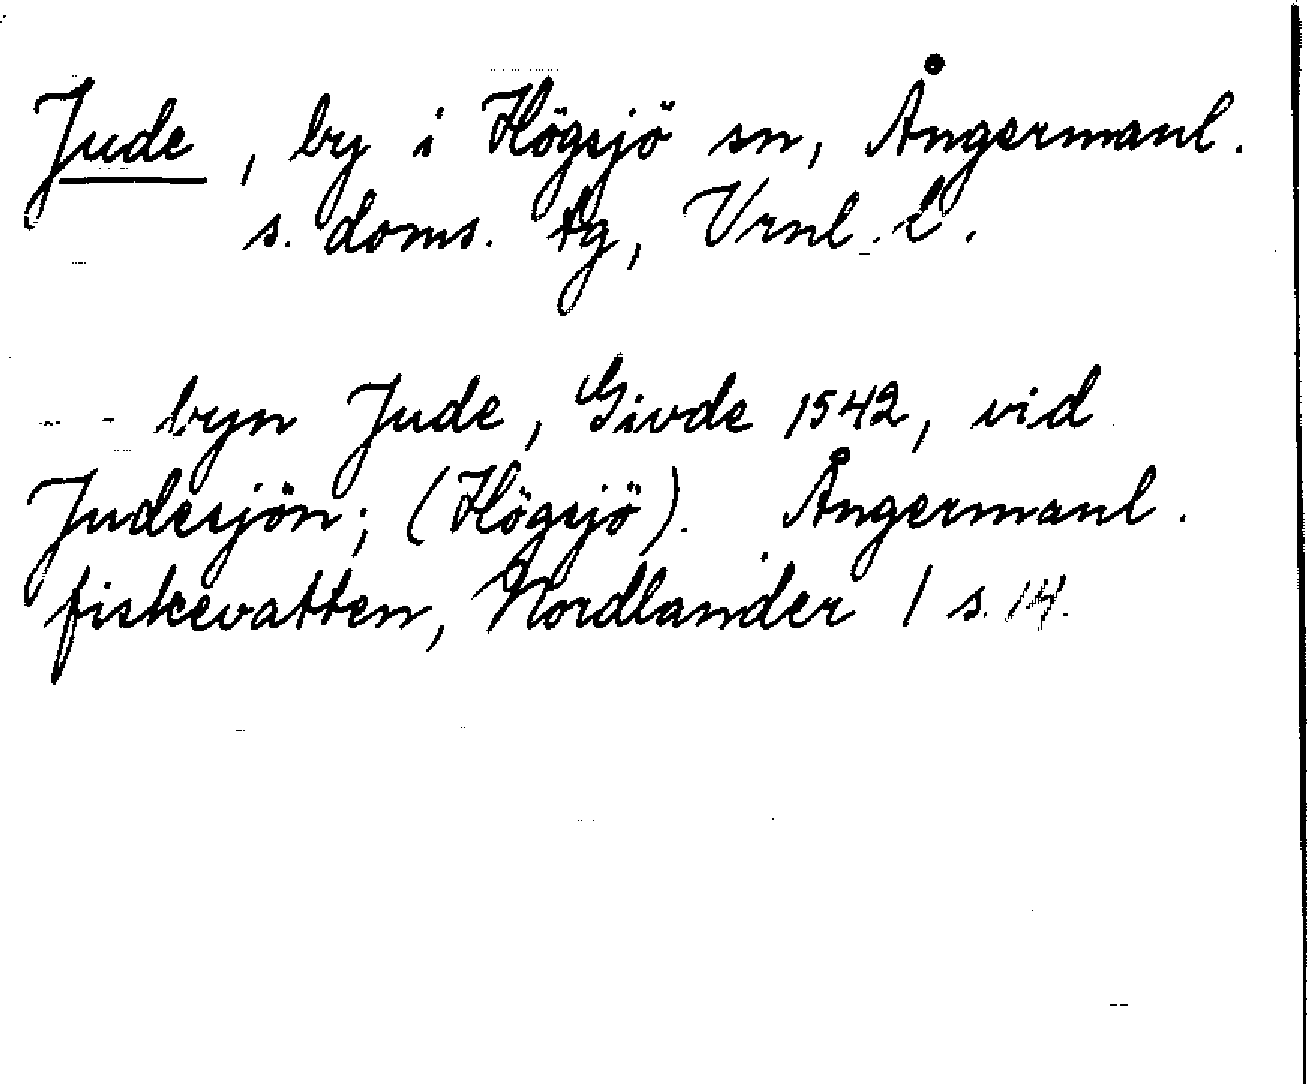 Jude, by i Högsjö sn, Ångermanl.
s. doms. tg, Vrnl. L.
- - byn Jude, Givde 1542, vid
Judesjön; (Högsjö). Ångermanl.
fiskevatten, Nordlander 1 s. 14.